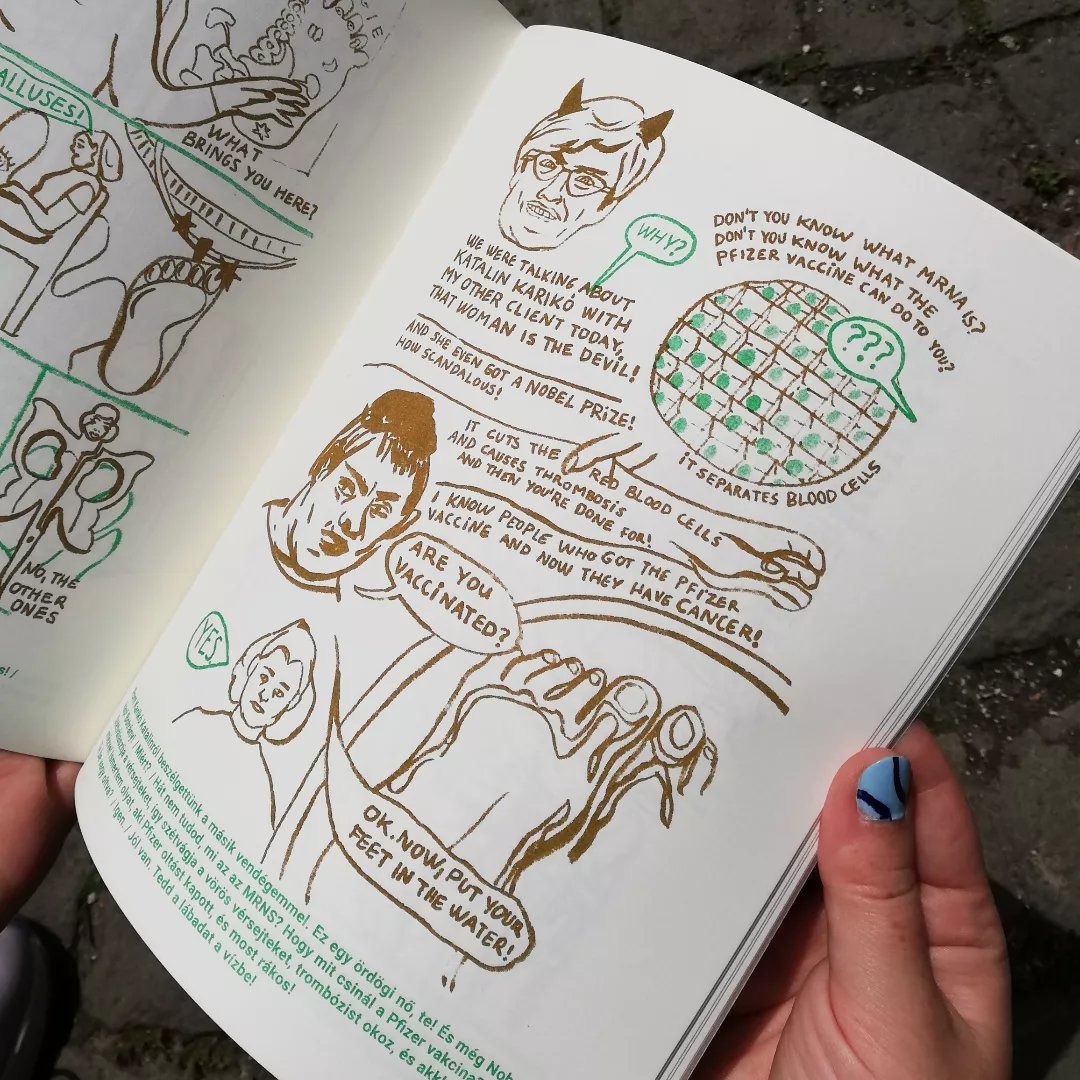 ALLUSES!
WHAT
BRINGS YOU HERE?
NO, THE
OTHER
ONES
WE WERE TALKING ABOUT
KATALIN KARIKÓ WITH
MY OTHER CLIENT TODAY,
THAT WOMAN IS THE DEVIL!
WHY?
AND SHE EVEN GOT A NOBEL PRIZE!
HOW SCANDALOUS!
DON'T YOU KNOW WHAT MRNA IS?
DON'T YOU KNOW WHAT THE
PFIZER VACCINE CAN DO TO YOU?
???
IT SEPARATES BLOOD CELLS
IT CUTS THE RED BLOOD CELLS
AND CAUSES THROMBOSIS
AND THEN YOU'RE DONE FOR!
I KNOW PEOPLE WHO GOT THE PFIZER
VACCINE AND NOW THEY HAVE CANCER!
ARE YOU
VACCINATED?
YES
OK. NOW, PUT YOUR
FEET IN THE WATER!
Katalinról beszélgettünk a másik vendégemmel. Ez egy ördögi nő, te! És még Nob
/ Miért? / Hát nem tudod, mi az az MRNS? Hogy mit csinál a Pfizer vakcina
a vérsejteket, így szétvágja a vörös vérsejteket, trombózist okoz, és akk
olyat, aki Pfizer oltást kapott, és most rákos!
/ Igen. / Jól van. Tedd a lábadat a vízbe!